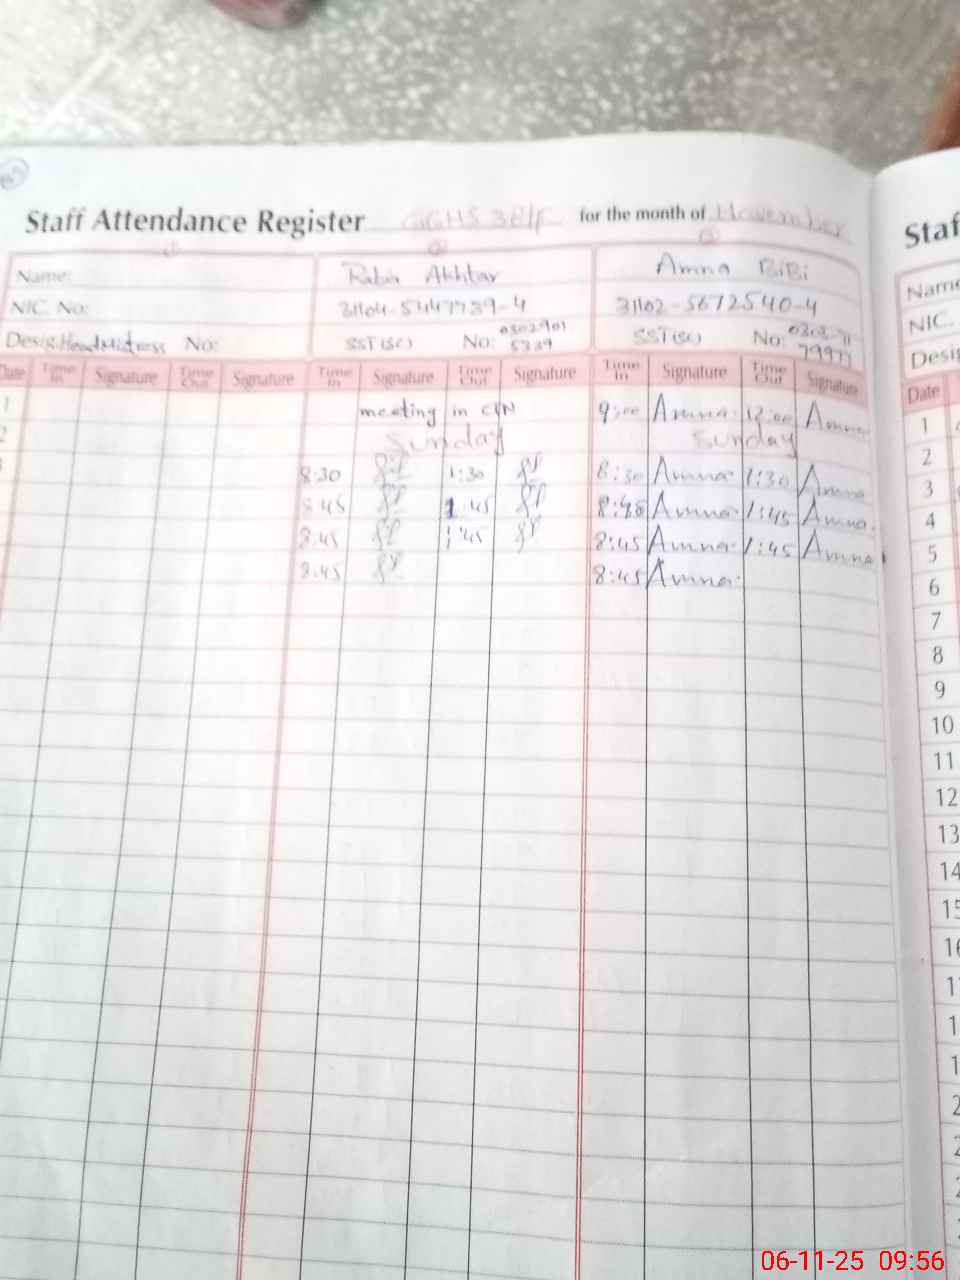 Staff Attendance Register GGHS 38/F for the month of November
Name: Rabia Akhtar Amna BiBi
NIC. No: 31104-5447739-4 31102-5672540-4
Desig: HeadMistress No: SST(SC) No: 0302901 5339 SST(SC) No: 0303-71 79971
Date Time In Signature Time Out Signature Time In Signature Time Out Signature Time In Signature Time Out Signature
1 meeting in 9:00 Amna 12:00 Amna
2 Sunday Sunday
8:30 1:30 8:30 Amna 1:30 Amna
8:45 1:45 8:45 Amna 1:45 Amna
8:45 1:45 8:45 Amna 1:45 Amna
8:45 8:45 Amna
Staf
Name
NIC.
Desig
Date
1
2
3
4
5
6
7
8
9
10
11
12
13
14
15
16
06-11-25 09:56